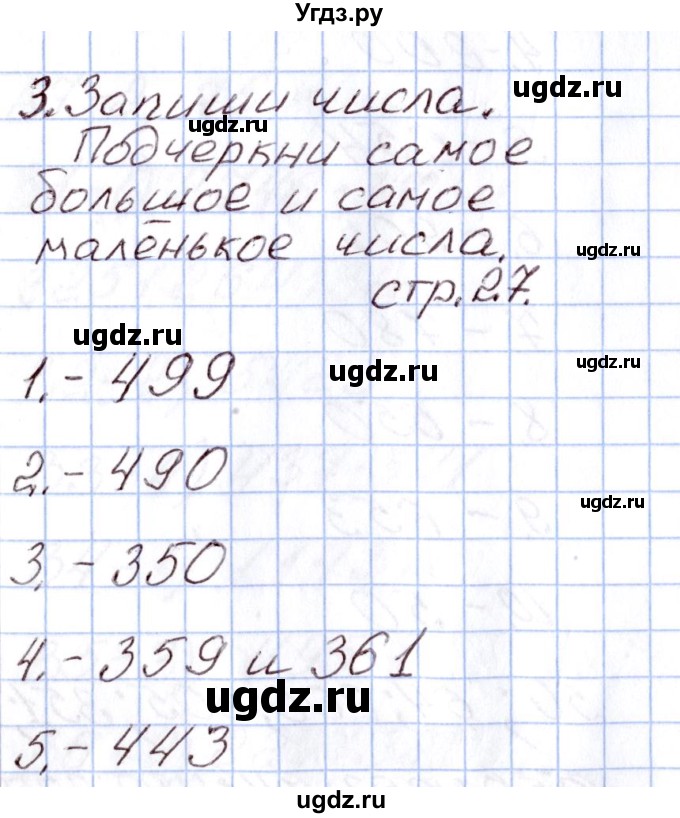 Угдз.ру
3. Запиши числа. ugdz.ru
ugdz.ru
Подчеркни самое
большое и самое
маленькое числа. ugdz.ru
стр. 27.
ugdz.ru
ugdz.ru ugdz.ru
1. - 499
2. - 490
ugdz.ru
3. - 350
4. - 359 и 361
ugdz.ru
5. - 443
ugdz.ru